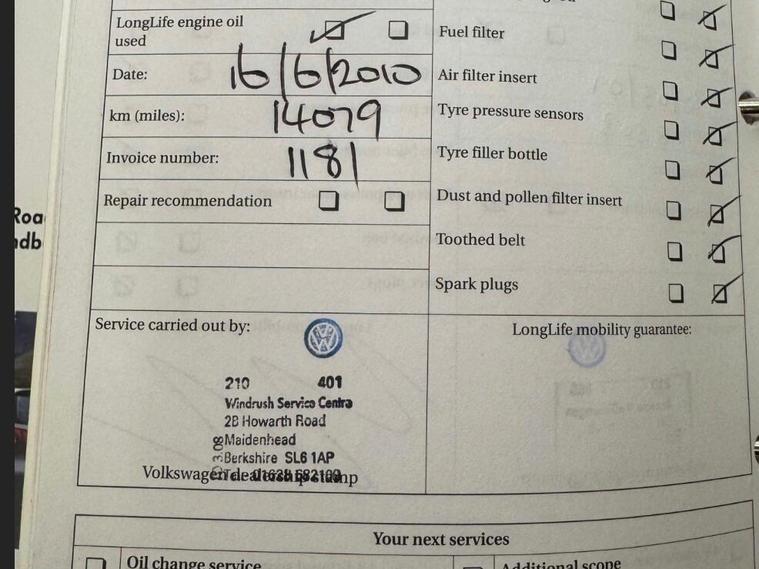 LongLife engine oil
used
Date: 16/6/2010
km (miles): 14079
Invoice number: 1181
Repair recommendation
Fuel filter
Air filter insert
Tyre pressure sensors
Tyre filler bottle
Dust and pollen filter insert
Toothed belt
Spark plugs
Service carried out by:
210 401
Windrush Service Centre
2B Howarth Road
Maidenhead
Berkshire SL6 1AP
Volkswagen dealership stamp
LongLife mobility guarantee:
Your next services
Oil change service
Additional scope
Roa
ndb